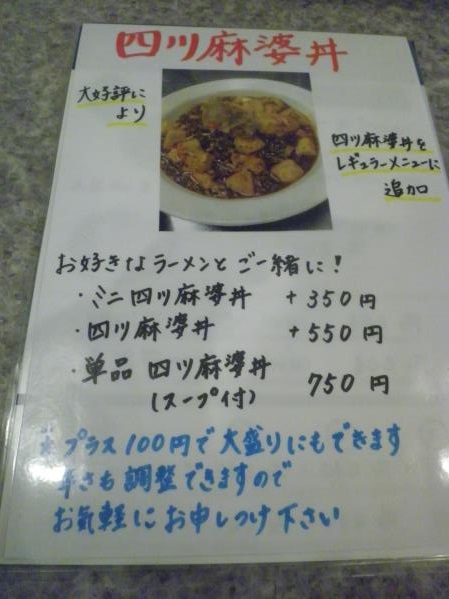 四川麻婆丼
大好評に
より
四川麻婆丼を
レギュラーメニューに
追加
お好きなラーメンとご一緒に!
・ミニ四川麻婆丼 +350円
・四川麻婆丼 +550円
・単品 四川麻婆丼 750円
(スープ付)
※プラス100円で大盛りにもできます
辛さも調整できますので
お気軽にお申しつけ下さい